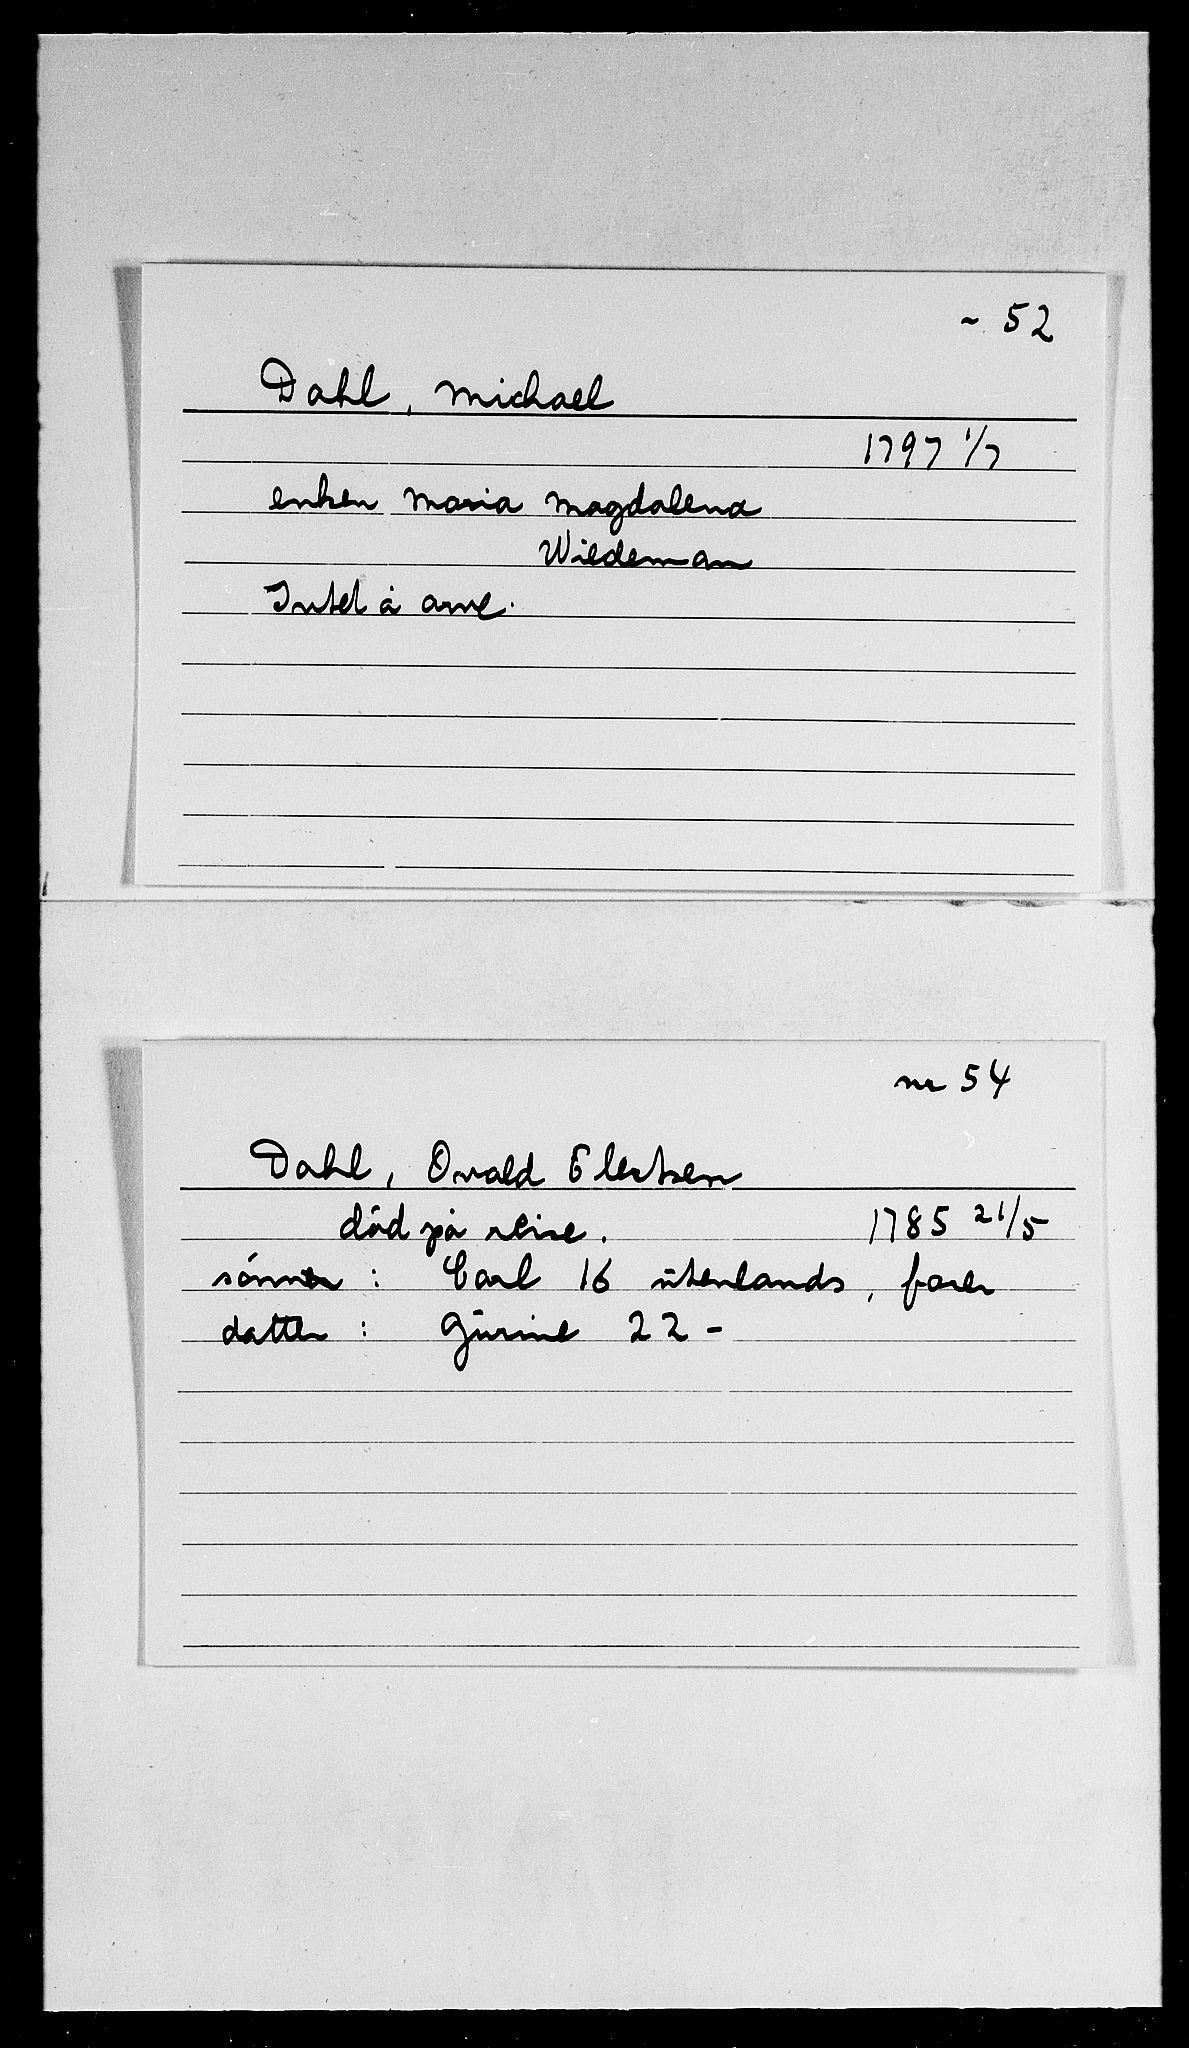 ~ 52
Dahl, Michael
1797 1/7
enken Maria Magdalena
Wiedeman
Intet å arve.
nr 54
Dahl, Ovald Elertsen
död på reise. 1785 21/5
sönner : Carl 16 utenlands, farer
datter : Gurine 22 -